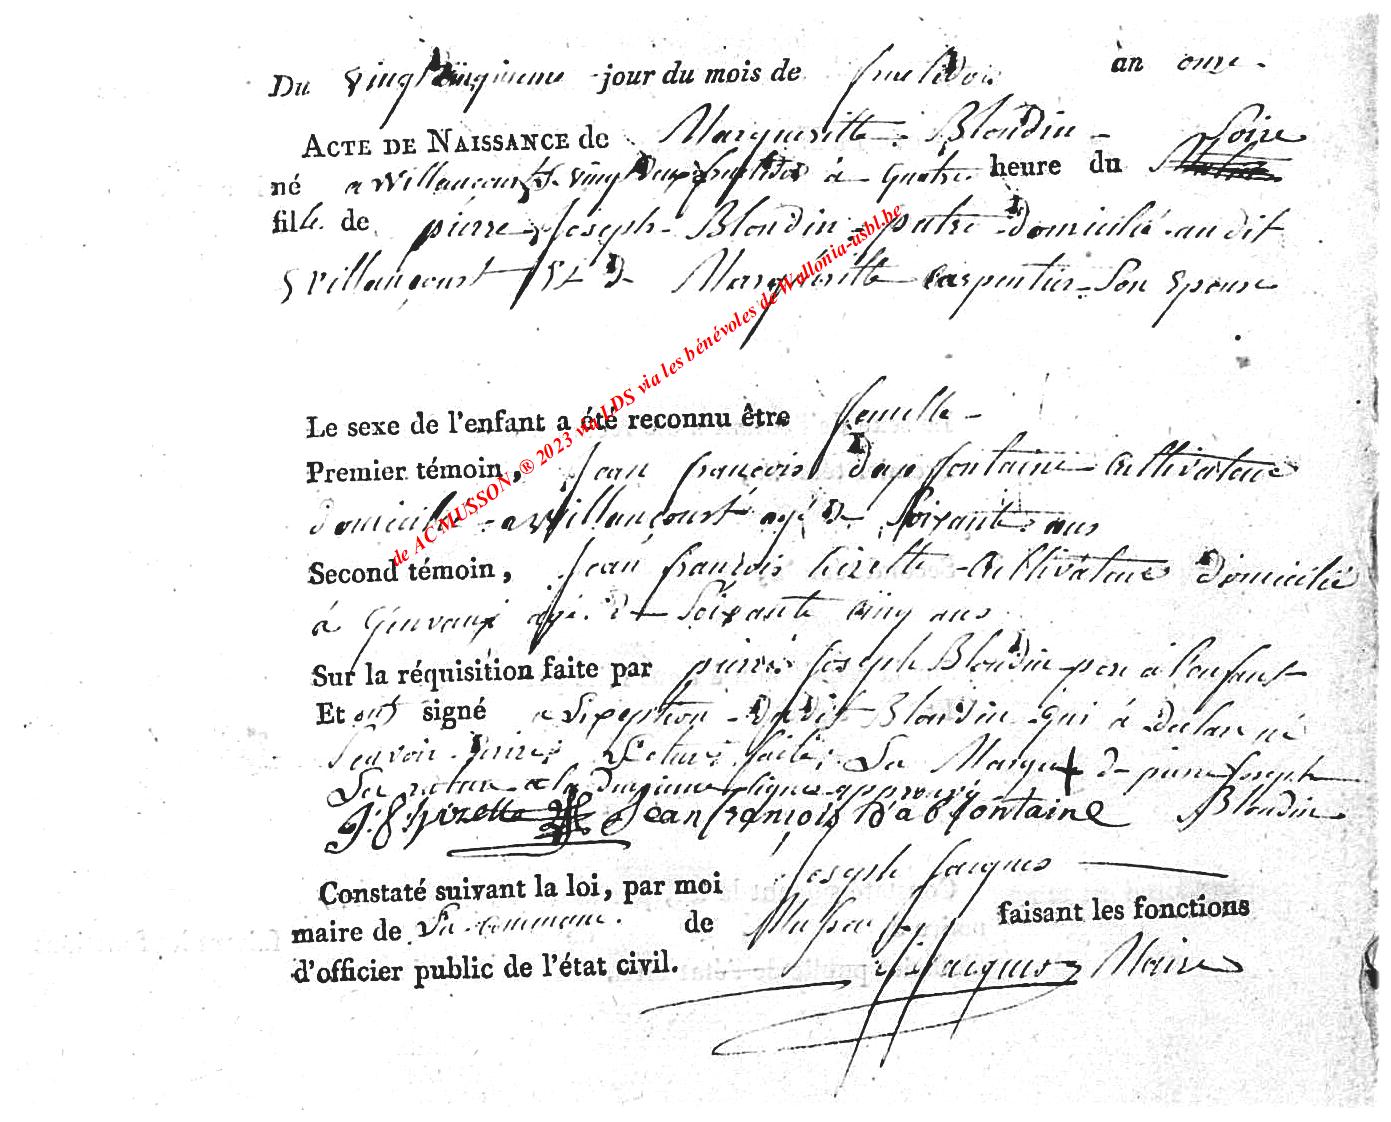 Du vingt cinquieme jour du mois de fructidor an onze
ACTE DE NAISSANCE de Margueritte Blondin Soire
né a Willancourt Le vingt deux fructidor à quatre heure du
fille de pierre Joseph Blondin patre Domicilié audit
Villancourt Et De Margueritte Carpentier Son Epouse
Le sexe de l'enfant a été reconnu être femelle
Premier témoin, Jean francois Dapffontaine Cultivateur
domicilié a Willancourt agé De Soixante ans
Second témoin, Jean françois hizette Cultivateur Domicilié
à Geuvaux agé De Soixante cinq ans
Sur la réquisition faite par pierre Joseph Blondin pere à l'enfant
Et ont signé a Lexeption Dudit Blondin qui à Declaré ne
Scavoir Ecrire Lecture faite, La Marque + De pierre Joseph
La rature a la Deuxieme ligne approuvé Blondin
J: f: hizette Jean francois D'abfontaine
Constaté suivant la loi, par moi Joseph Jacques
maire de La commune de Musson faisant les fonctions
d'officier public de l'état civil. Jacques Maire
de AC MUSSON. ® 2023 via LDS via les bénévoles de Wallonia-asbl.be